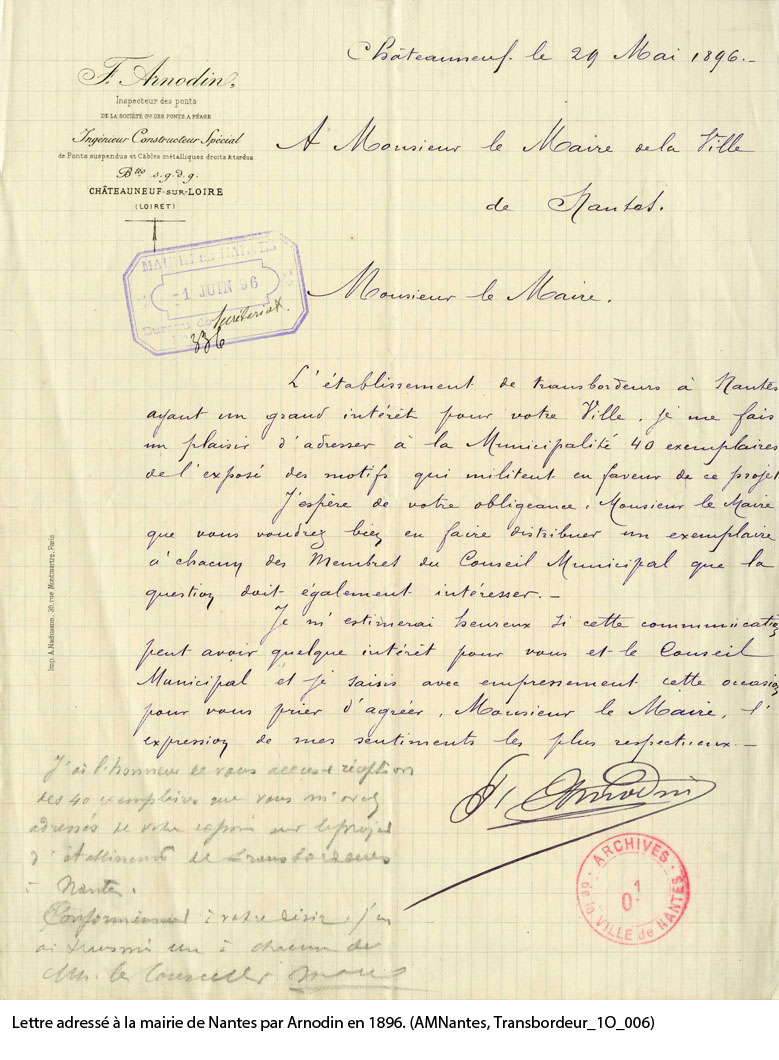 F. Arnodin,
Inspecteur des ponts
DE LA SOCIÉTÉ Gle DES PONTS A PÉAGE
Ingénieur Constructeur Spécial
de Ponts suspendus et Câbles métalliques droits & tordus
Btés s.g.d.g.
CHÂTEAUNEUF-SUR-LOIRE
(LOIRET)
Châteauneuf. le 29 Mai 1896.-
A Monsieur le Maire de la Ville
de Nantes.
MAIRIE DE NANTES
-1 JUIN 96
Bureau du Secrétariat
336
Monsieur le Maire.
L'établissement de transbordeurs à Nantes
ayant un grand intérêt pour votre Ville, je me fais
un plaisir d'adresser à la Municipalité 40 exemplaires
de l'exposé des motifs qui militent en faveur de ce projet
J'espère de votre obligeance, Monsieur le Maire
que vous voudrez bien en faire distribuer un exemplaire
à chacun des Membres du Conseil Municipal que la
question doit également intéresser.-
Je m'estimerai heureux si cette communication
peut avoir quelque intérêt pour vous et le Conseil
Municipal et je saisis avec empressement cette occasion
pour vous prier d'agréer, Monsieur le Maire, l'
expression de mes sentiments les plus respectueux.-
F. Arnodin
Imp. A. Nachmann, 39, rue Montmartre, Paris
J'ai l'honneur de vous accuser réception
des 40 exemplaires que vous m'avez
adressés de votre exposé sur le projet
d'établissement de transbordeurs
à Nantes.
Conformément à votre désir, j'en
ai transmis un à chacun de
MM. les Conseillers
ARCHIVES
1
O
de la VILLE de NANTES
Lettre adressé à la mairie de Nantes par Arnodin en 1896. (AMNantes, Transbordeur_1O_006)